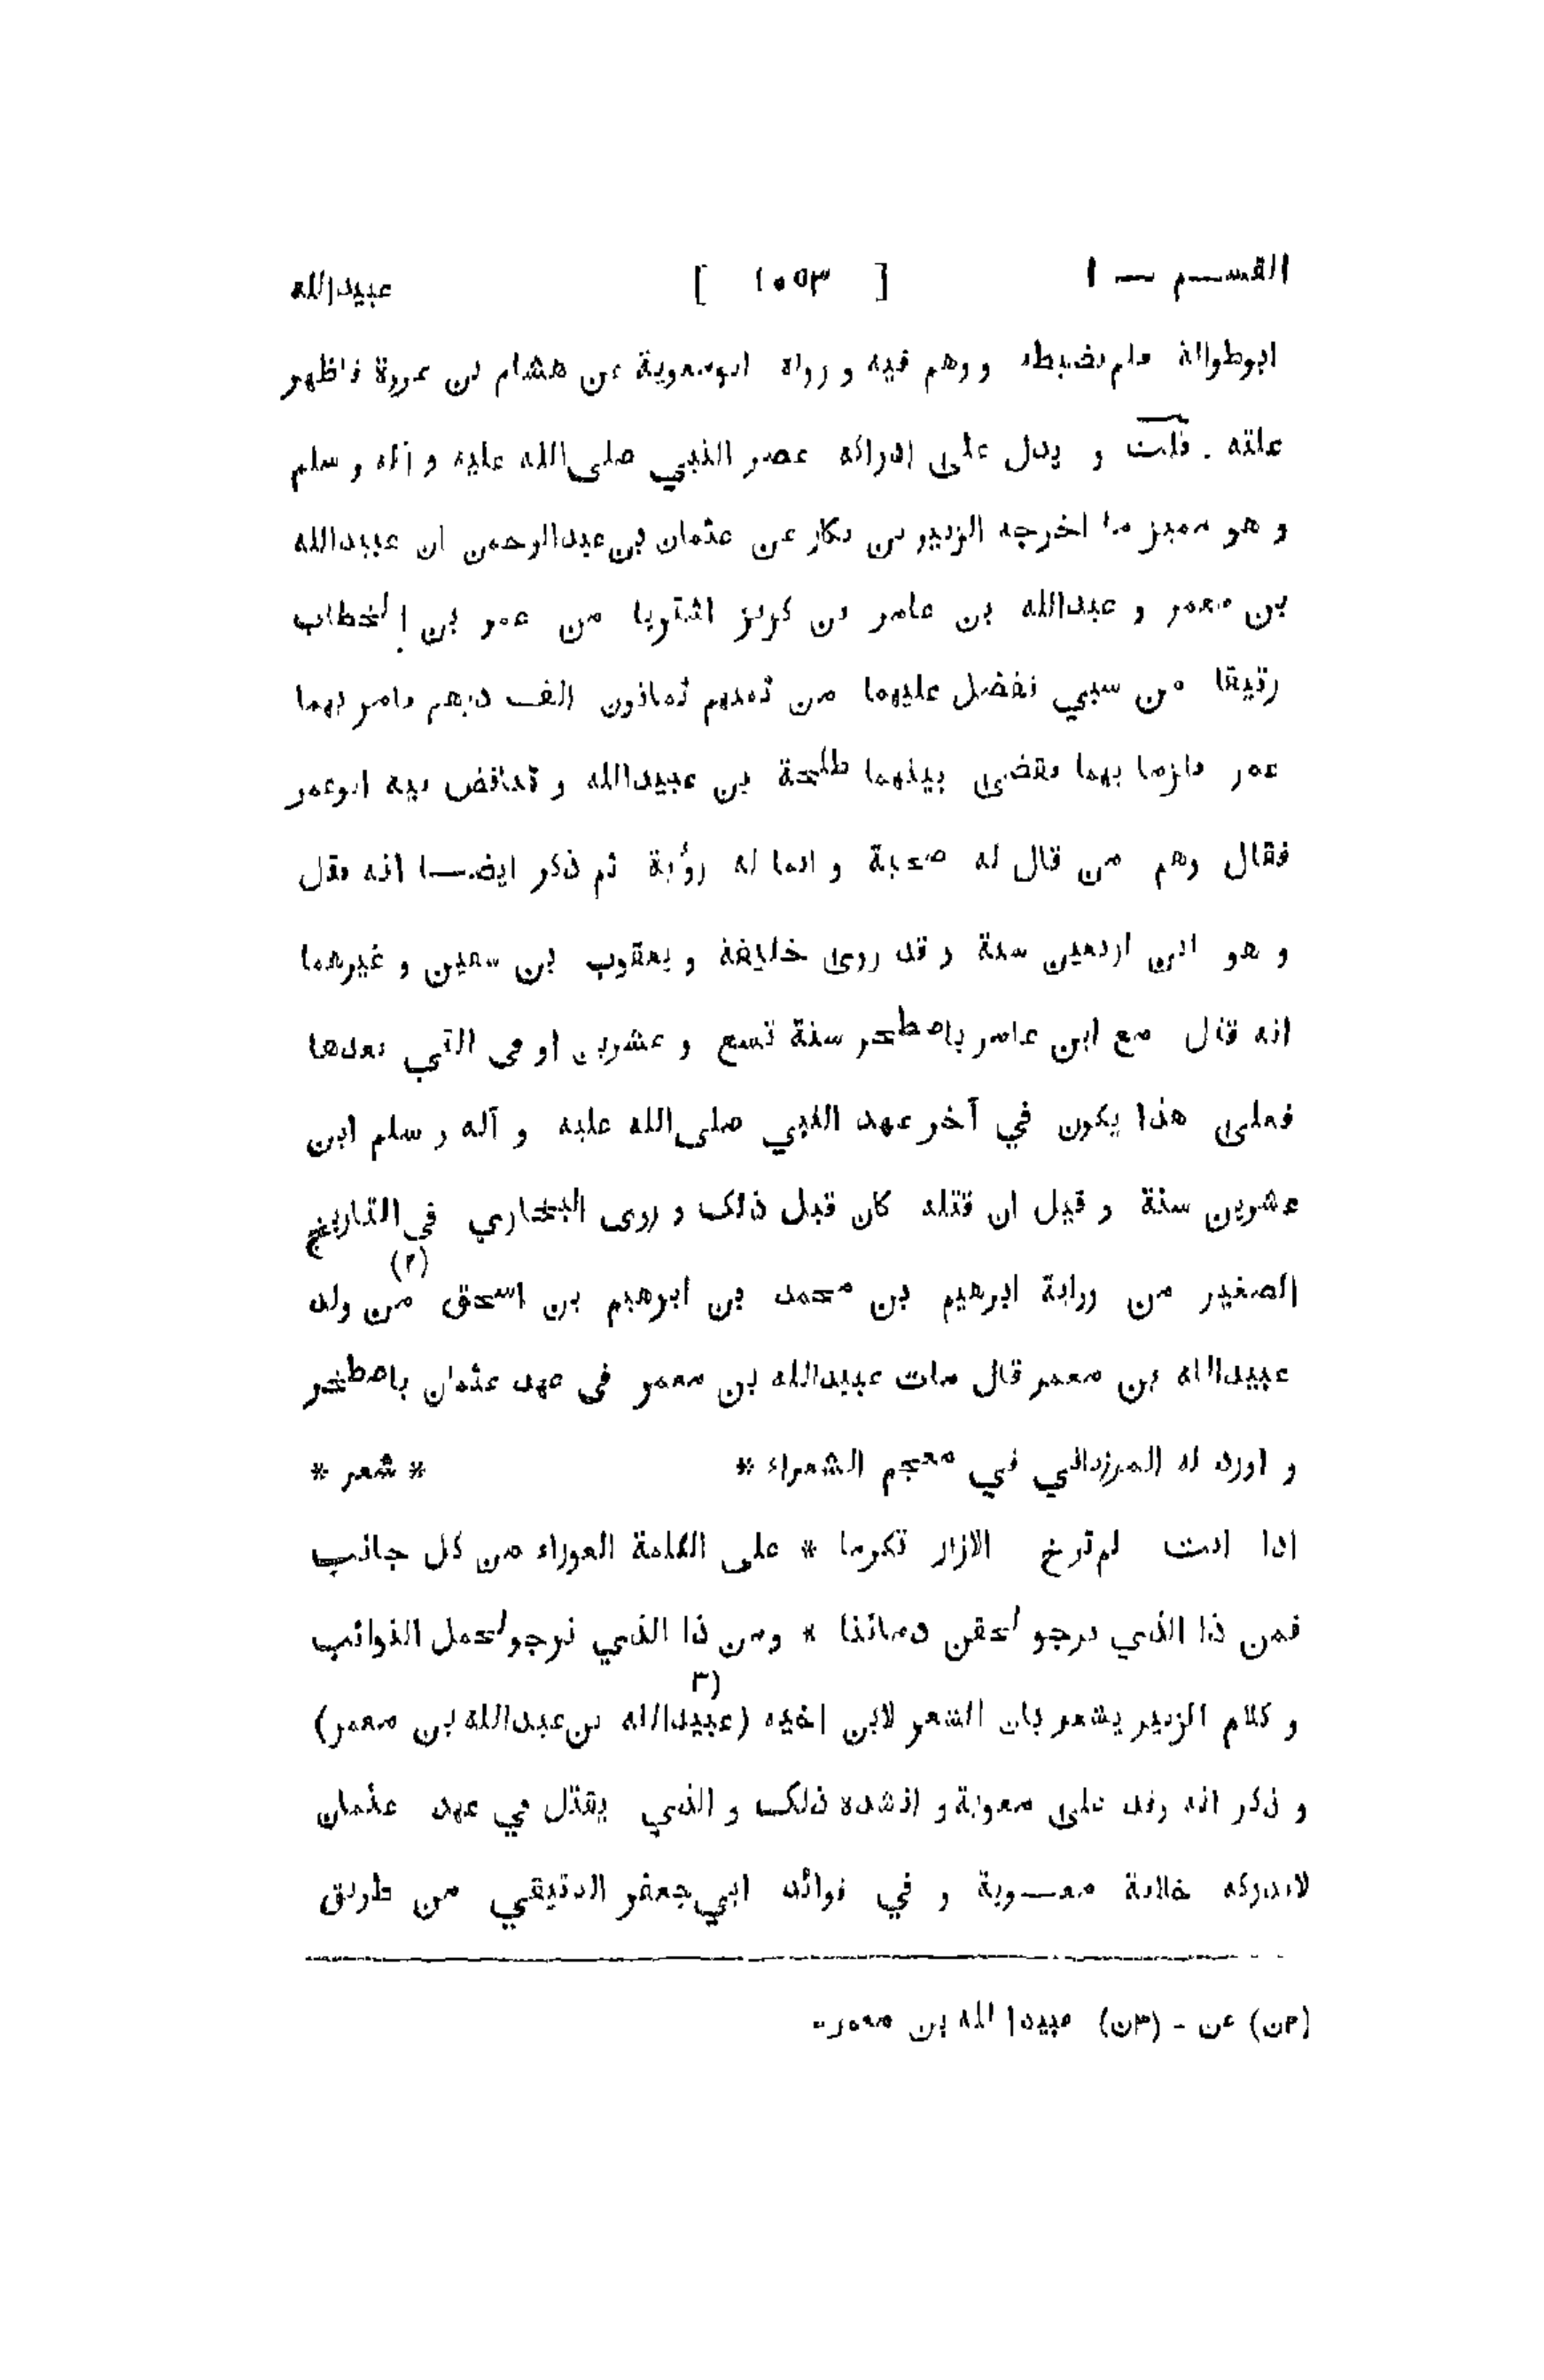 القسم — ١ [ ١٠٥٣ ] عبيدالله
ابوطوالة فلم يضبطه و وهم فيه و رواه ابومعوية عن هشام بن عروة فاظهر
علته . قلت و يدل على ادراكه عصر النبي صلى الله عليه و آله و سلم
و هو مميز ما اخرجه الزبير بن بكار عن عثمان بن عبدالرحمن ان عبيدالله
بن معمر و عبدالله بن عامر بن كريز اشتريا من عمر بن الخطاب
رقيقا من سبي ففضل عليهما من ثمنهم ثمانون الف درهم فامر بهما
عمر فلزما بهما فقضى بينهما طلحة بن عبيدالله و تناقض فيه ابوعمر
فقال وهم من قال له صحبة و انما له رؤية ثم ذكر ايضا انه قتل
و هو ابن اربعين سنة و قد روى خليفة و يعقوب بن سفين و غيرهما
انه قتل مع ابن عامر باصطخر سنة تسع و عشرين او في التي بعدها
فعلى هذا يكون في آخر عهد النبي صلى الله عليه و آله و سلم ابن
عشرين سنة و قيل ان قتله كان قبل ذلک و روى البخاري في التاريخ
الصغير من رواية ابرهيم بن محمد بن ابرهيم بن اسحق (٢) من ولد
عبيدالله بن معمر قال مات عبيدالله بن معمر فى عهد عثمان باصطخر
و اورد له المرزباني في معجم الشعراء * * شعر *
اذا انت لم ترخ الازار تكرما * على الكلمة العوراء من كل جانب
فمن ذا الذي نرجو لحقن دمائنا * ومن ذا الذي نرجو لحمل النوائب
و كلام الزبير يشعر بان الشعر لابن اخيه (عبيدالله بن عبدالله بن معمر) (٣
و ذكر انه وفد على معوية و انشده ذلک و الذي يقتل في عهد عثمان
لايدركه خلافة معوية و في فوائد ابي جعفر الدقيقي من طريق
(٢ن) عن - (٣ن) عبيدا لله بن معمر -